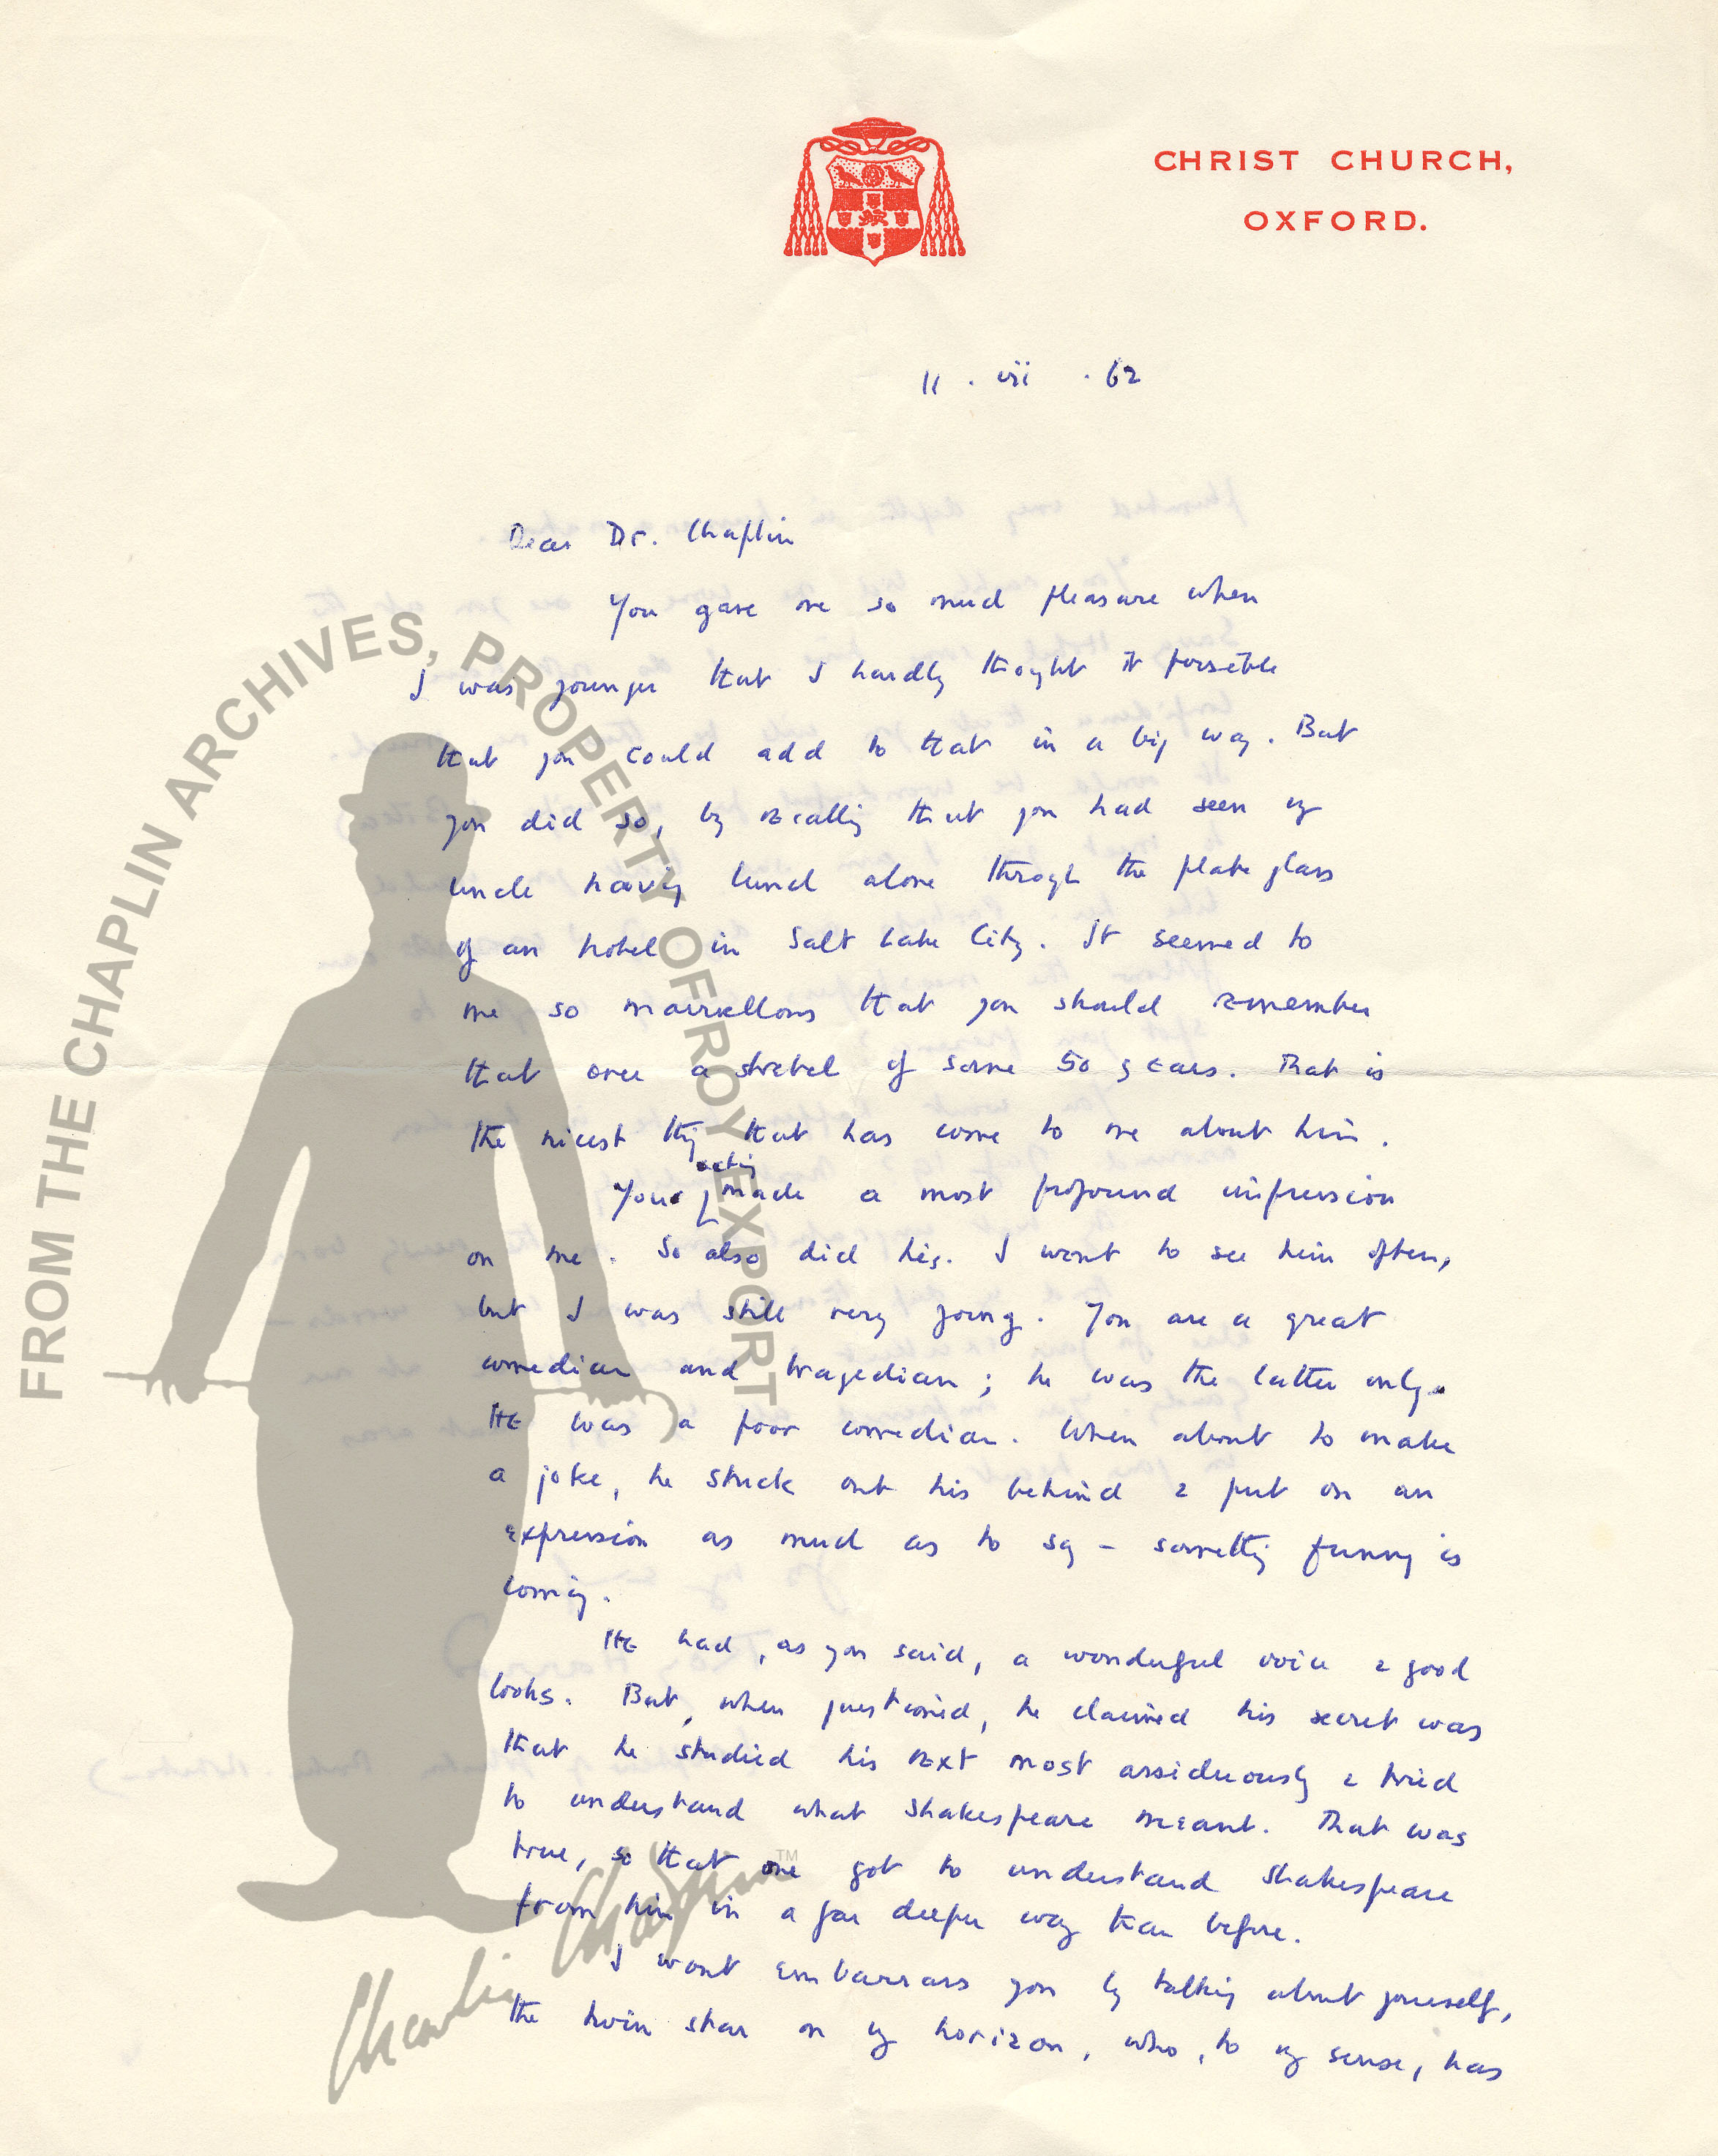 CHRIST CHURCH,
OXFORD.
11 . vii . 62
Dear Dr. Chaplin
You gave me so much pleasure when
I was younger that I hardly thought it possible
that you could add to that in a big way. But
you did so, by recalling that you had seen my
uncle having lunch alone through the plate glass
of an hotel in Salt Lake City. It seemed to
me so marvellous that you should remember
that over a stretch of some 50 years. That is
the nicest thing that has come to me about him.
Your acting made a most profound impression
on me. So also did his. I went to see him often,
but I was still very young. You are a great
comedian and tragedian; he was the latter only.
He was a poor comedian. When about to make
a joke, he stuck out his behind & put on an
expression as much as to say – something funny is
coming.
He had, as you said, a wonderful voice & good
looks. But, when questioned, he claimed his secret was
that he studied his text most assiduously & tried
to understand what Shakespeare meant. That was
true, so that one got to understand Shakespeare
from him in a far deeper way than before.
I wont embarrass you by talking about yourself,
the twin star on my horizon, who, to my sense, has
FROM THE CHAPLIN ARCHIVES, PROPERTY OF ROY EXPORT
Charlie Chaplin™